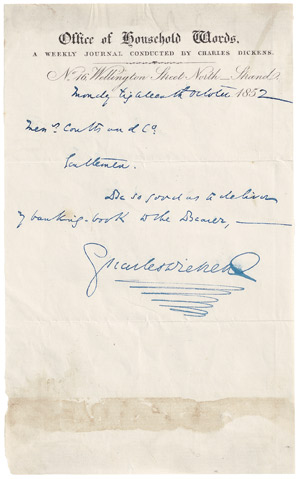 Office of Household Words,
A WEEKLY JOURNAL CONDUCTED BY CHARLES DICKENS.
No. 16, Wellington Street North, Strand.
Monday Eighteenth October 1852
Messrs. Coutts and Co.
Gentlemen.
Be so good as to deliver
my banking-book to the Bearer,
Charles Dickens